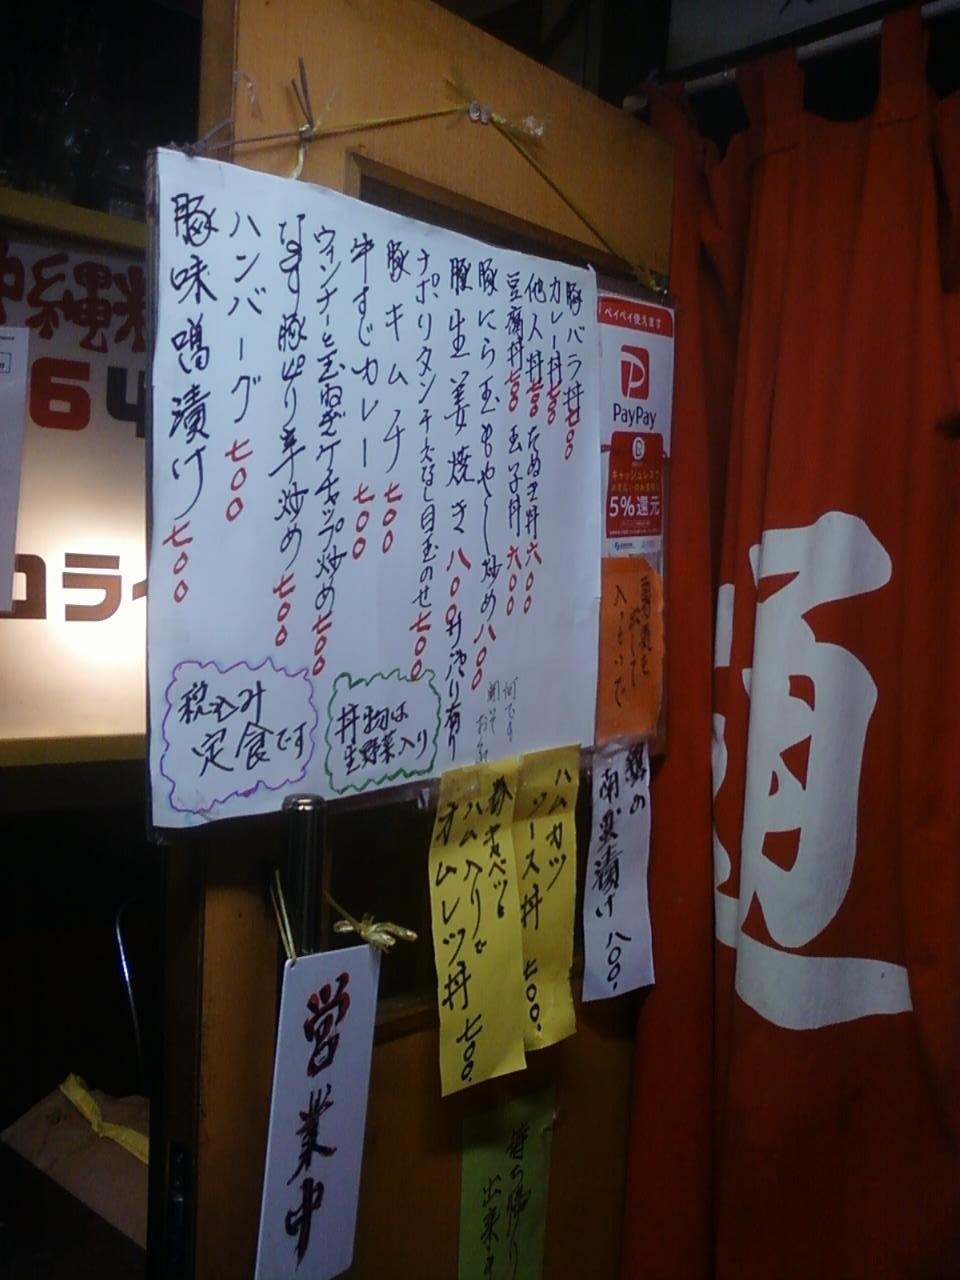 豚バラ丼七〇〇
カレー丼七〇〇
他人丼七〇〇 たぬき丼六〇〇
豆腐丼七〇〇 玉子丼六〇〇
豚にら玉もやし炒め八〇〇
豚生姜焼き八〇〇 丼汁有り
ナポリタンチーズなし目玉のせ七〇〇
豚キムチ七〇〇
牛すじカレー七〇〇
ウィンナーと玉ねぎケチャップ炒め七〇〇
なす豚ぴり辛炒め七〇〇
ハンバーグ七〇〇
豚味噌漬け七〇〇
丼物は
生野菜入り
税込み
定食です
何です
ペイペイ使えます
PayPay
キャッシュレスで
5%還元
入って
南蛮漬け 八〇〇.
ハムカツ
ソース丼 七〇〇.
キャベツと
ハム入りで
オムレツ丼 七〇〇.
営業中
持ち帰り
出来
沖縄
64
コライ
酒